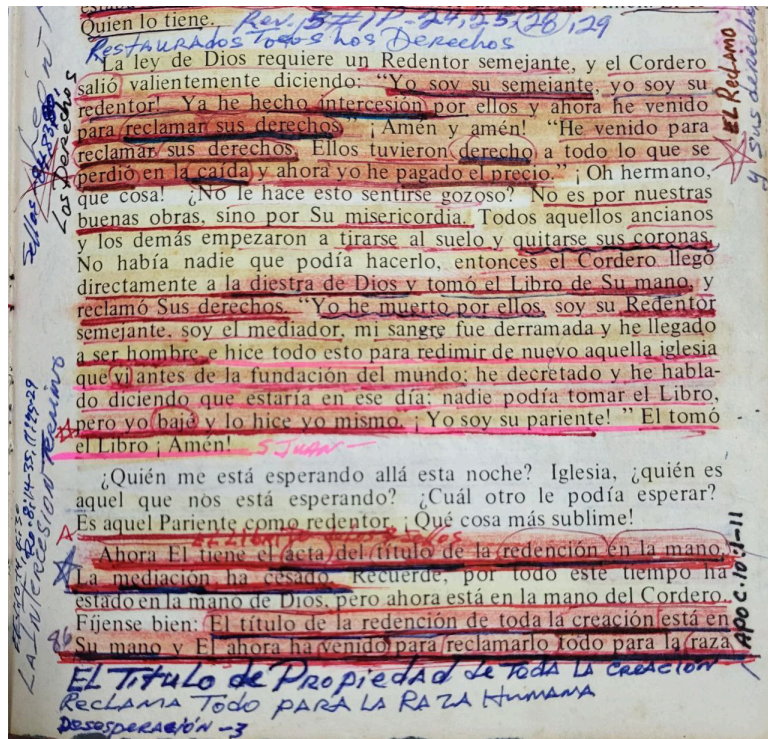 Quien lo tiene.
Rev. 5 #1P-24,25(28),29
Restaurados Todos Los Derechos
La ley de Dios requiere un Redentor semejante, y el Cordero
salió valientemente diciendo: “Yo soy su semejante, yo soy su
redentor! Ya he hecho intercesión por ellos y ahora he venido
para reclamar sus derechos. ¡Amén y amén! “He venido para
reclamar sus derechos. Ellos tuvieron derecho a todo lo que se
perdió en la caída y ahora yo he pagado el precio.” ¡Oh hermano,
que cosa! ¿No le hace esto sentirse gozoso? No es por nuestras
buenas obras, sino por Su misericordia. Todos aquellos ancianos
y los demás empezaron a tirarse al suelo y quitarse sus coronas.
No había nadie que podía hacerlo, entonces el Cordero llegó
directamente a la diestra de Dios y tomó el Libro de Su mano, y
reclamó Sus derechos. “Yo he muerto por ellos, soy su Redentor
semejante, soy el mediador, mi sangre fue derramada y he llegado
a ser hombre e hice todo esto para redimir de nuevo aquella iglesia
que vi antes de la fundación del mundo; he decretado y he habla-
do diciendo que estaría en ese día; nadie podía tomar el Libro,
pero yo bajé y lo hice yo mismo. ¡Yo soy su pariente!” El tomó
el Libro ¡Amén!
S. Juan
¿Quién me está esperando allá esta noche? Iglesia, ¿quién es
aquel que nos está esperando? ¿Cuál otro le podía esperar?
Es aquel Pariente como redentor. ¡Qué cosa más sublime!
Ahora El tiene el acta del título de la redención en la mano.
La mediación ha cesado. Recuerde, por todo este tiempo ha
estado en la mano de Dios, pero ahora está en la mano del Cordero.
Fíjense bien: El título de la redención de toda la creación está en
Su mano y El ahora ha venido para reclamarlo todo para la raza
86
El Título de Propiedad de Toda La Creación
Reclama Todo Para La Raza Humana
Desesperación-3
Los Derechos
La Intercesión Termino
El Reclamo
y sus derechos
Apoc. 10:1-11